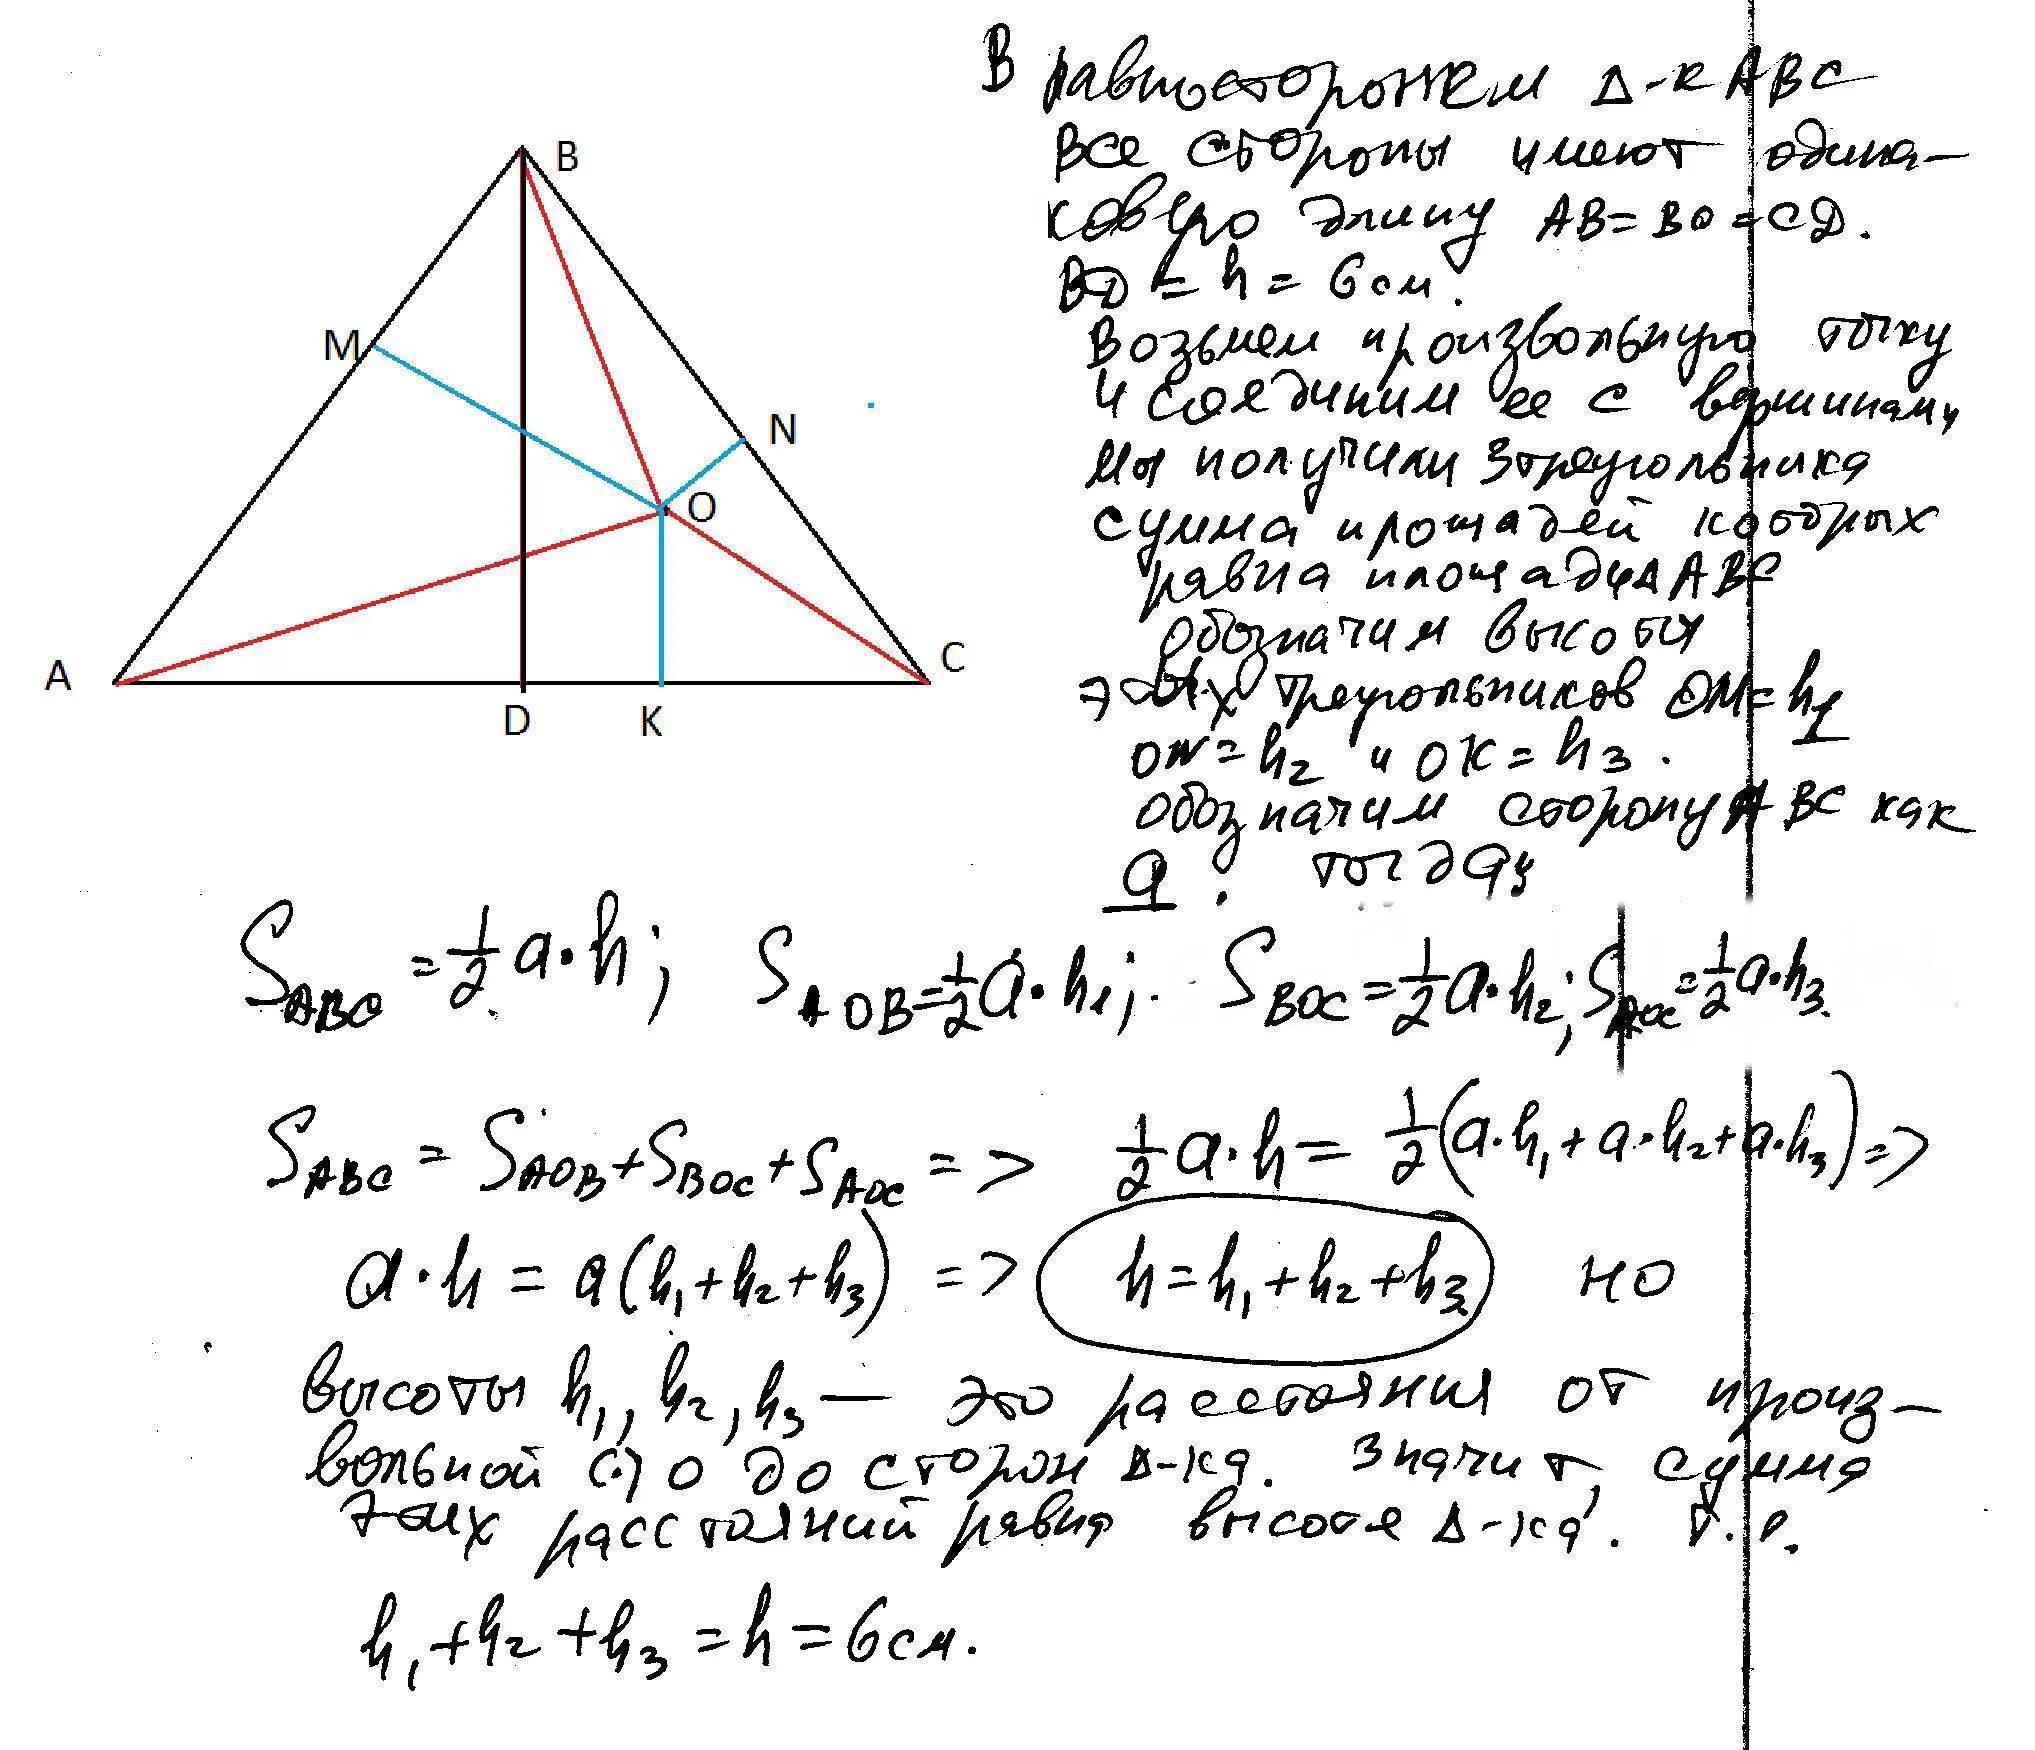 B
M
N
O
A
C
D
K
В равностороннем Δ-к ABC
все стороны имеют одина-
ковую длину AB=BC=CD.
BD = h = 6 см.
Возьмем произвольную точку
и соединим ее с вершинами
мы получили 3 треугольника
сумма площадей которых
равна площади Δ ABC
обозначим высоты
этих треугольников OM=h1
ON=h2 и OK=h3.
обозначим сторону ABC как
a. тогда
S ABC = 1/2 a·h; S AOB = 1/2 a·h1; S BOC = 1/2 a·h2; S AOC = 1/2 a·h3.
S ABC = S AOB + S BOC + S AOC => 1/2 a·h = 1/2 (a·h1 + a·h2 + a·h3) =>
a·h = a(h1+h2+h3) => h=h1+h2+h3 но
высоты h1, h2, h3 — это расстояния от произ-
вольной (·) O до сторон Δ-ка. Значит, сумма
этих расстояний равна высоте Δ-ка. т.е.
h1+h2+h3 = h = 6 см.